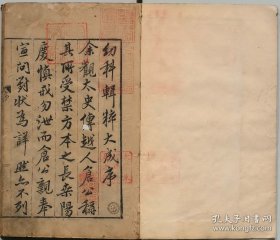 幼科輯粹大成序
余觀太史傳越人倉公稱
其所受禁方本之長桑陽
慶慎我勿泄而倉公親奉
宣問對狀為詳
然不列
孔夫子旧书网